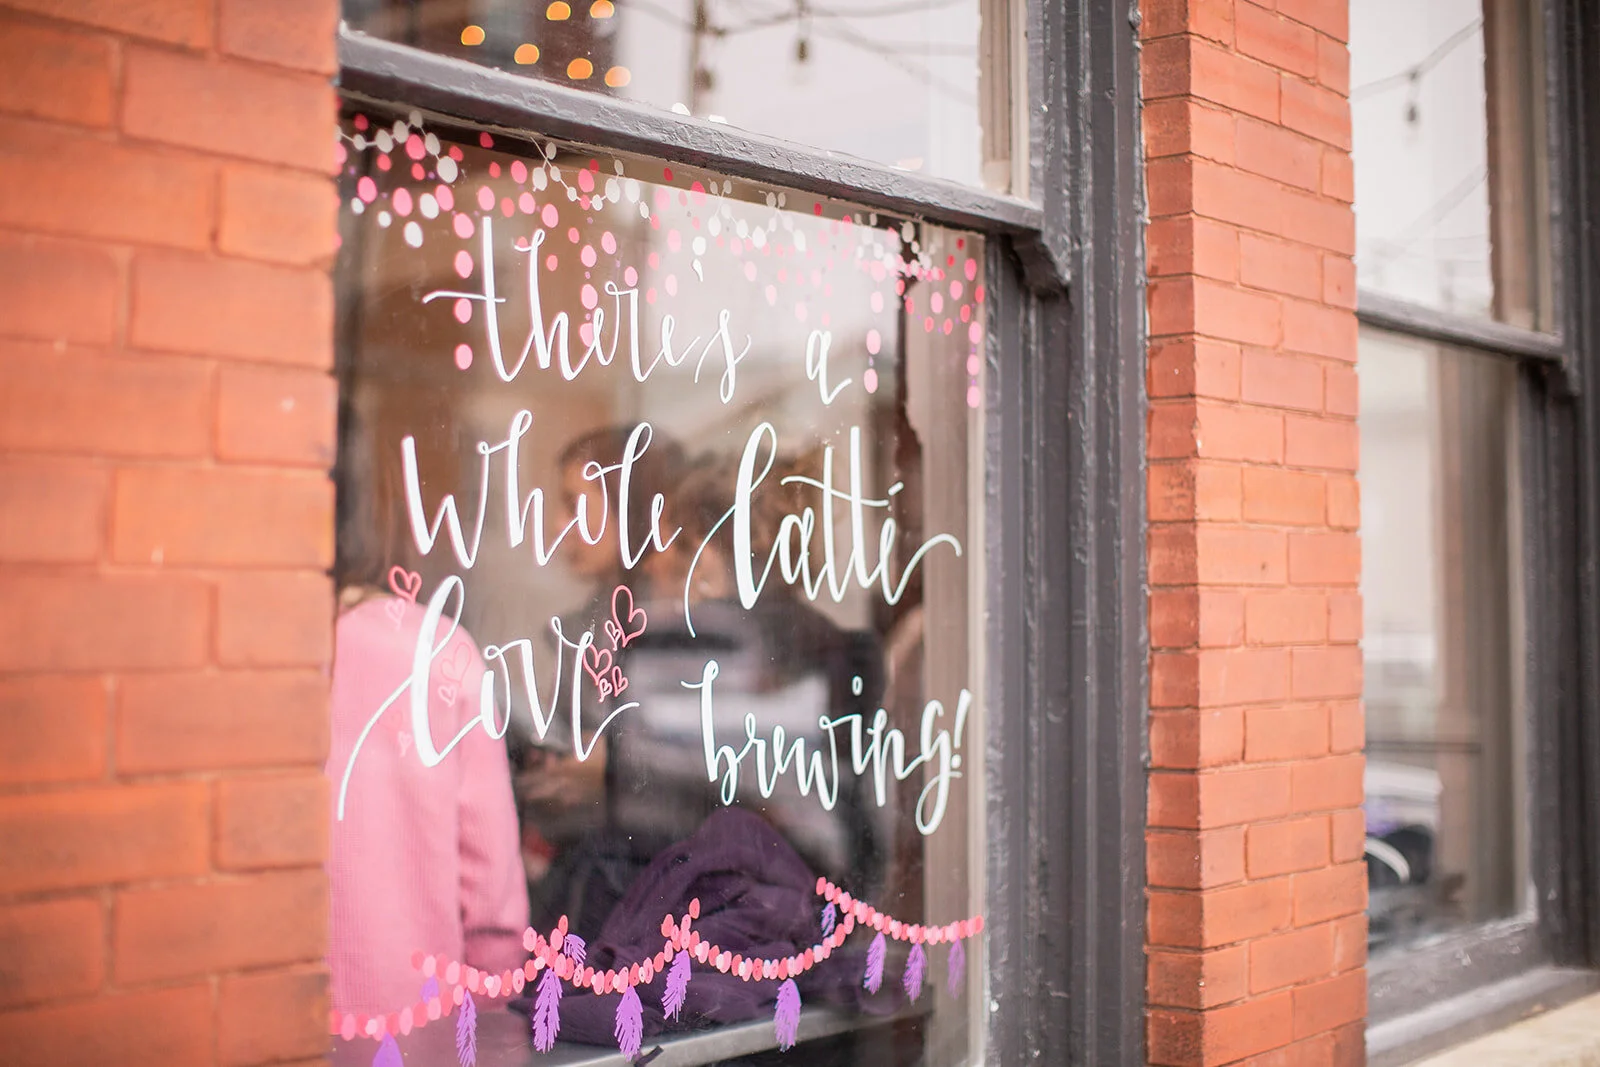 there's a
whole latté
love brewing!